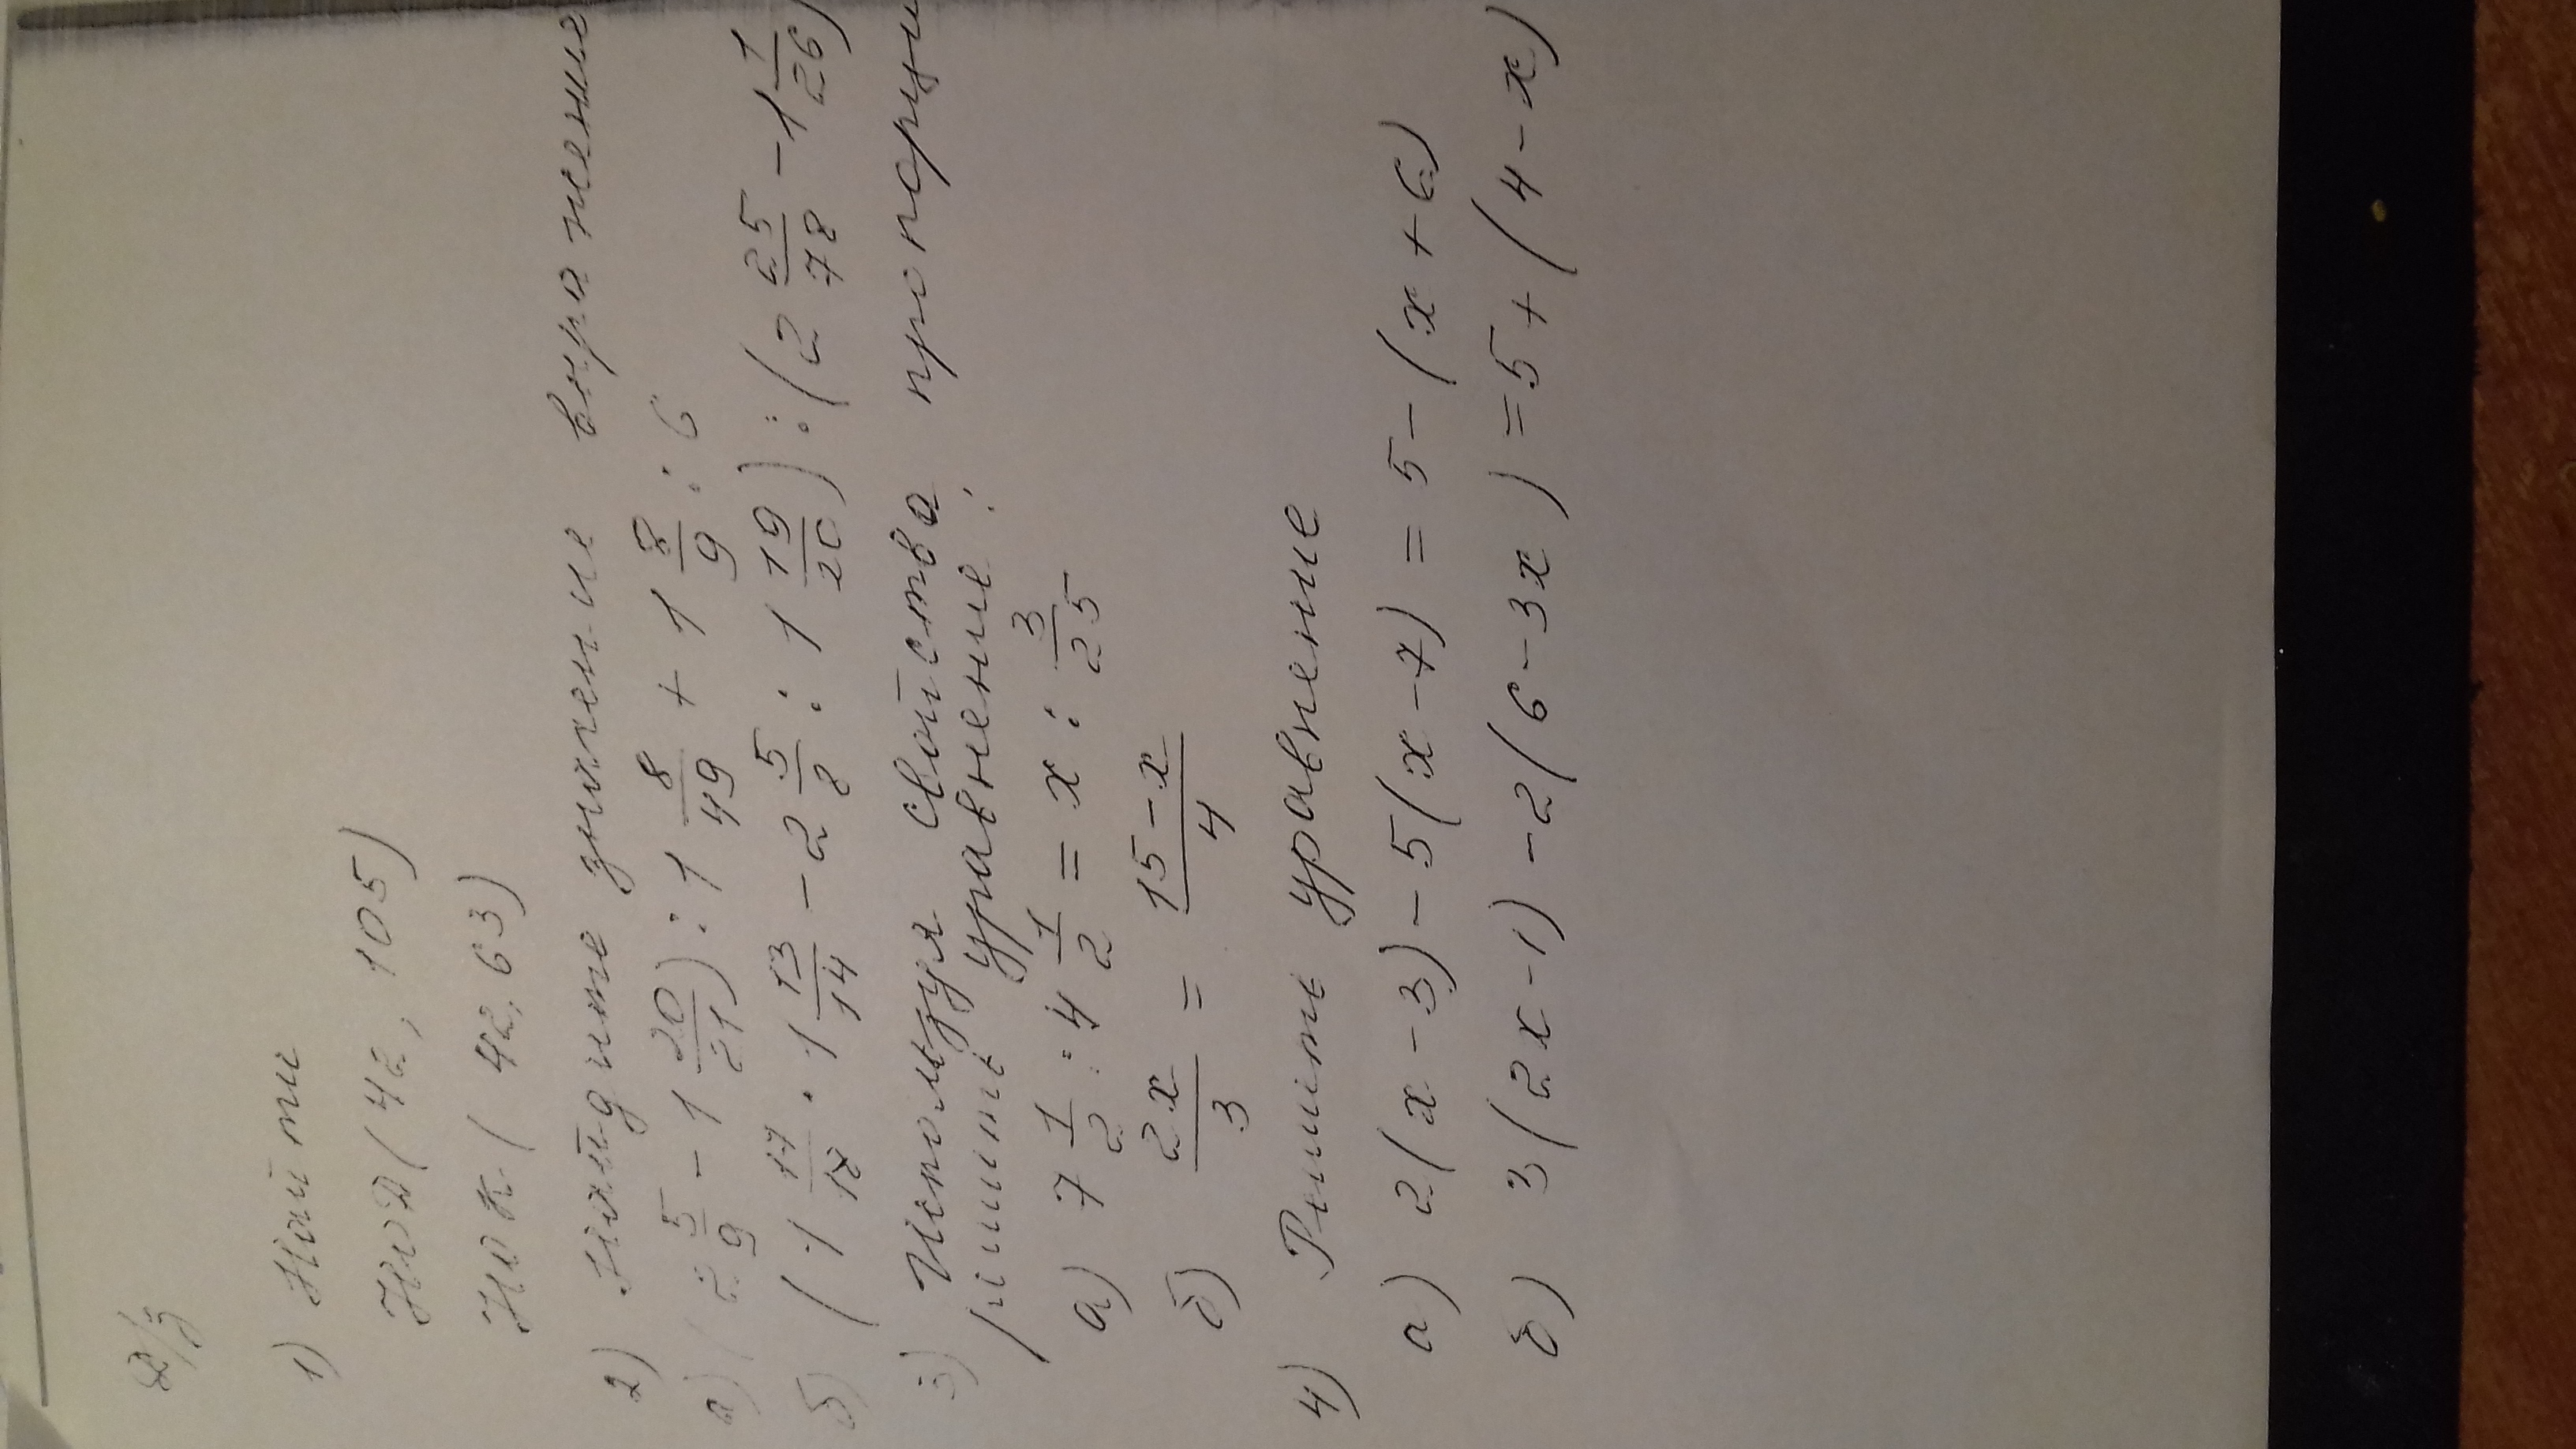 Д/з
1) Найти
НОД (42, 105)
НОК (42, 63)
2) Найдите значение выражения
а) (2 5/9 - 1 20/21) : 1 8/49 + 1 5/9 : 6
б) (1 17/18 · 1 13/14 - 2 5/8 : 1 19/20) : (2 25/78 - 1 1/26)
3) Используя свойства пропорции
решить уравнение:
а) 7 1/2 : 4 1/2 = x : 3/25
б) 2x/3 = 15-x/4
4) Решить уравнение
а) 2(x-3) - 5(x-7) = 5 - (x+6)
б) 3(2x-1) - 2(6-3x) = 5 + (4-x)